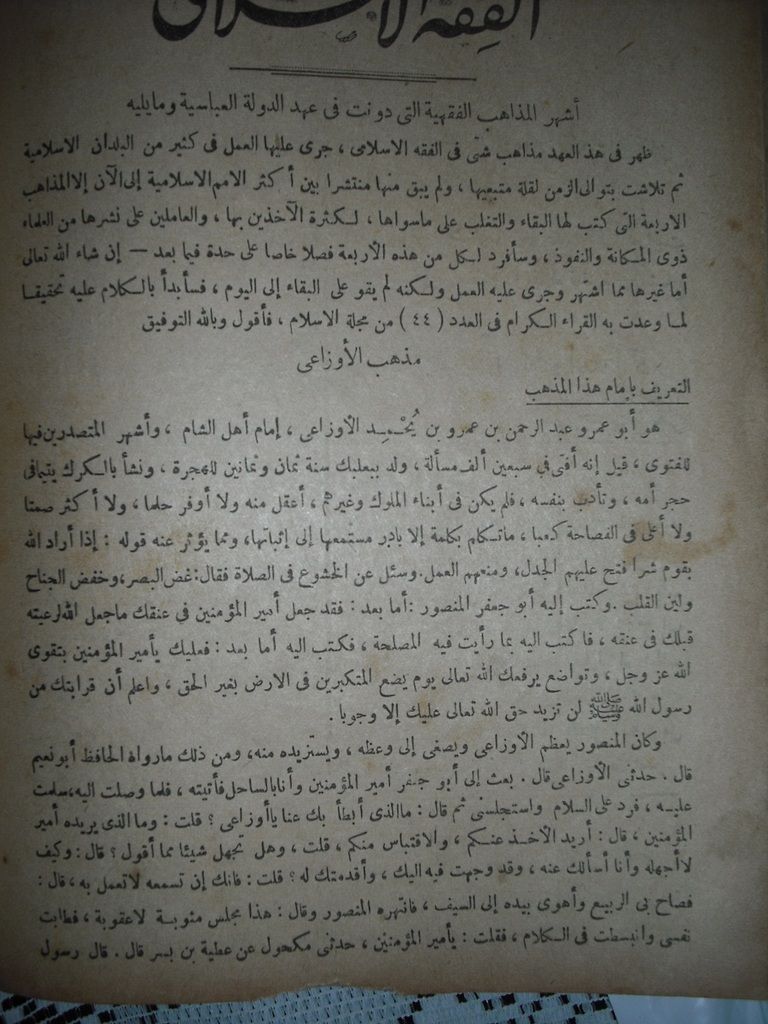 الفقه الاسلامي
أشهر المذاهب الفقهية التى دونت فى عهد الدولة العباسية ومايليه
ظهر فى هذ العهد مذاهب شتى فى الفقه الاسلامى ، جرى عليها العمل فى كثير من البلدان الاسلامية
ثم تلاشت بتوالى الزمن لقلة متبعيها ، ولم يبق منها منتشرا بين أكثر الامم الاسلامية إلى الآن إلا المذاهب
الاربعة التى كتب لها البقاء والتغلب على ماسواها ، لكثرة الآخذين بها ، والعاملين على نشرها من العلماء
ذوى المكانة والنفوذ ، وسأفرد لكل من هذه الأربعة فصلا خاصا على حدة فيما بعد — إن شاء الله تعالى
أما غيرها مما اشتهر وجرى عليه العمل ولكنه لم يقو على البقاء إلى اليوم ، فسأبدأ بالكلام عليه تحقيقا
لما وعدت به القراء الكرام فى العدد ( ٤٤ ) من مجلة الاسلام ، فأقول وبالله التوفيق
مذهب الأوزاعى
التعريف بإمام هذا المذهب
هو أبو عمرو عبد الرحمن بن عمرو بن يُحْمِد الأوزاعى ، إمام أهل الشام ، وأشهر المتصدرين فيها
للفتوى ، قيل إنه أفتى فى سبعين ألف مسألة ، ولد ببعلبك سنة ثمان وثمانين للهجرة ، ونشأ بالكرك يتيما فى
حجر أمه ، وتأدب بنفسه ، فلم يكن فى أبناء الملوك وغيرهم ، أعقل منه ولا أوفر حلما ، ولا أكثر صمتا
ولا أعلى فى الفصاحة كعبا ، ماتكلم بكلمة إلا بادر مستمعها إلى إثباتها، ومما يؤثر عنه قوله : إذا أراد الله
بقوم شرا فتح عليهم الجدل، ومنعهم العمل. وسئل عن الخشوع فى الصلاة فقال: غض البصر، وخفض الجناح
ولين القلب . وكتب إليه أبو جعفر المنصور : أما بعد : فقد جعل أمير المؤمنين فى عنقك ماجعل الله لرعيته
قبلك فى عنقه ، فاكتب اليه بما رأيت فيه المصلحة ، فكتب اليه أما بعد : فعليك يأمير المؤمنين بتقوى
الله عز وجل ، وتواضع يرفعك الله تعالى يوم يضع المتكبرين فى الارض بغير الحق ، واعلم أن قرابتك من
رسول الله ﷺ لن تزيد حق الله تعالى عليك إلا وجوبا .
وكان المنصور يعظم الأوزاعى ويصغى إلى وعظه ، ويستزيده منه، ومن ذلك مارواه الحافظ أبو نعيم
قال . حدثى الأوزاعى قال . بعث إلى أبو جعفر أمير المؤمنين وأنا بالساحل فأتيته ، فلما وصلت اليه، سلمت
عليه ، فرد على السلام واستجلسنى ثم قال : ما الذى أبطأ بك عنا يا أوزاعى ؟ قلت : وما الذى يريده أمير
المؤمنين ، قال : أريد الأخذ عنكم ، والاقتباس منكم ، قلت ، وهل تجهل شيئا مما أقول ؟ قال : وكيف
لا أجهله وأنا أسألك عنه ، وقد وجهت فيه اليك ، وأقدمتك له ؟ قلت : فانك إن تسمعه لاتعمل به ، قال :
فصاح بى الربيع وأهوى بيده إلى السيف ، فانتهره المنصور وقال : هذا مجلس مثوبة لاعقوبة ، فطابت
نفسى وانبسطت فى الكلام ، فقلت : يأمير المؤمنين ، حدثنى مكحول عن عطية بن بسر قال . قال رسول